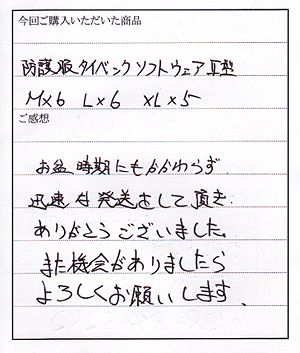 今回ご購入いただいた商品
防護服タイベックソフトウェアⅡ型
M×6 L×6 XL×5
ご感想
お盆時期にもかかわらず
迅速な発送をして頂き
ありがとうございました。
また機会がありましたら
よろしくお願いします、